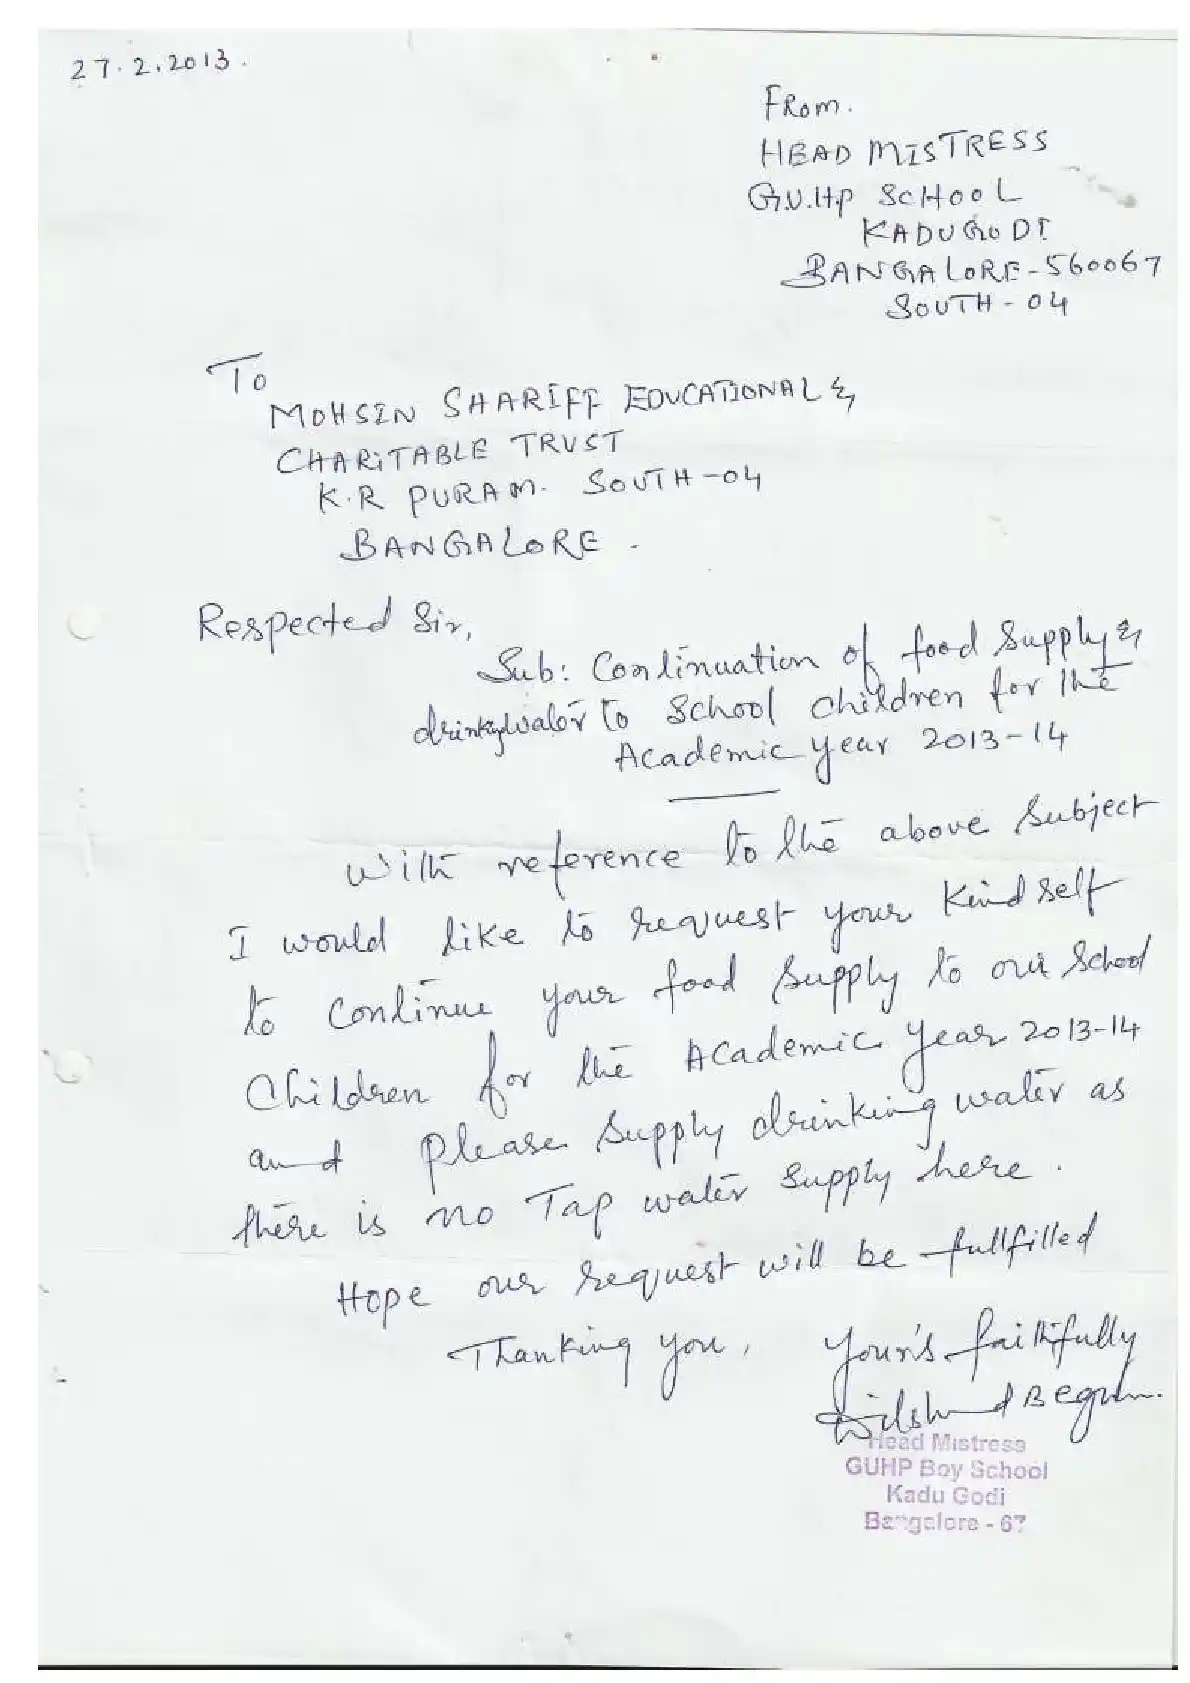 27.2.2013.
From.
HEAD MISTRESS
G.U.H.P SCHOOL
KADUGODI
BANGALORE-560067
SOUTH-04
To
MOHSIN SHARIFF EDUCATIONAL &
CHARITABLE TRUST
K.R PURAM. SOUTH-04
BANGALORE.
Respected Sir,
Sub: Continuation of food supply &
drinkingwater to school children for the
Academic year 2013-14
With reference to the above subject
I would like to request your kind self
to continue your food supply to our school
Children for the Academic year 2013-14
and please supply drinking water as
there is no Tap water supply here.
Hope our request will be fullfilled
Thanking you, Your's faithfully
Dilshad Begum.
Head Mistress
GUHP Boy School
Kadu Godi
Bangalore - 67